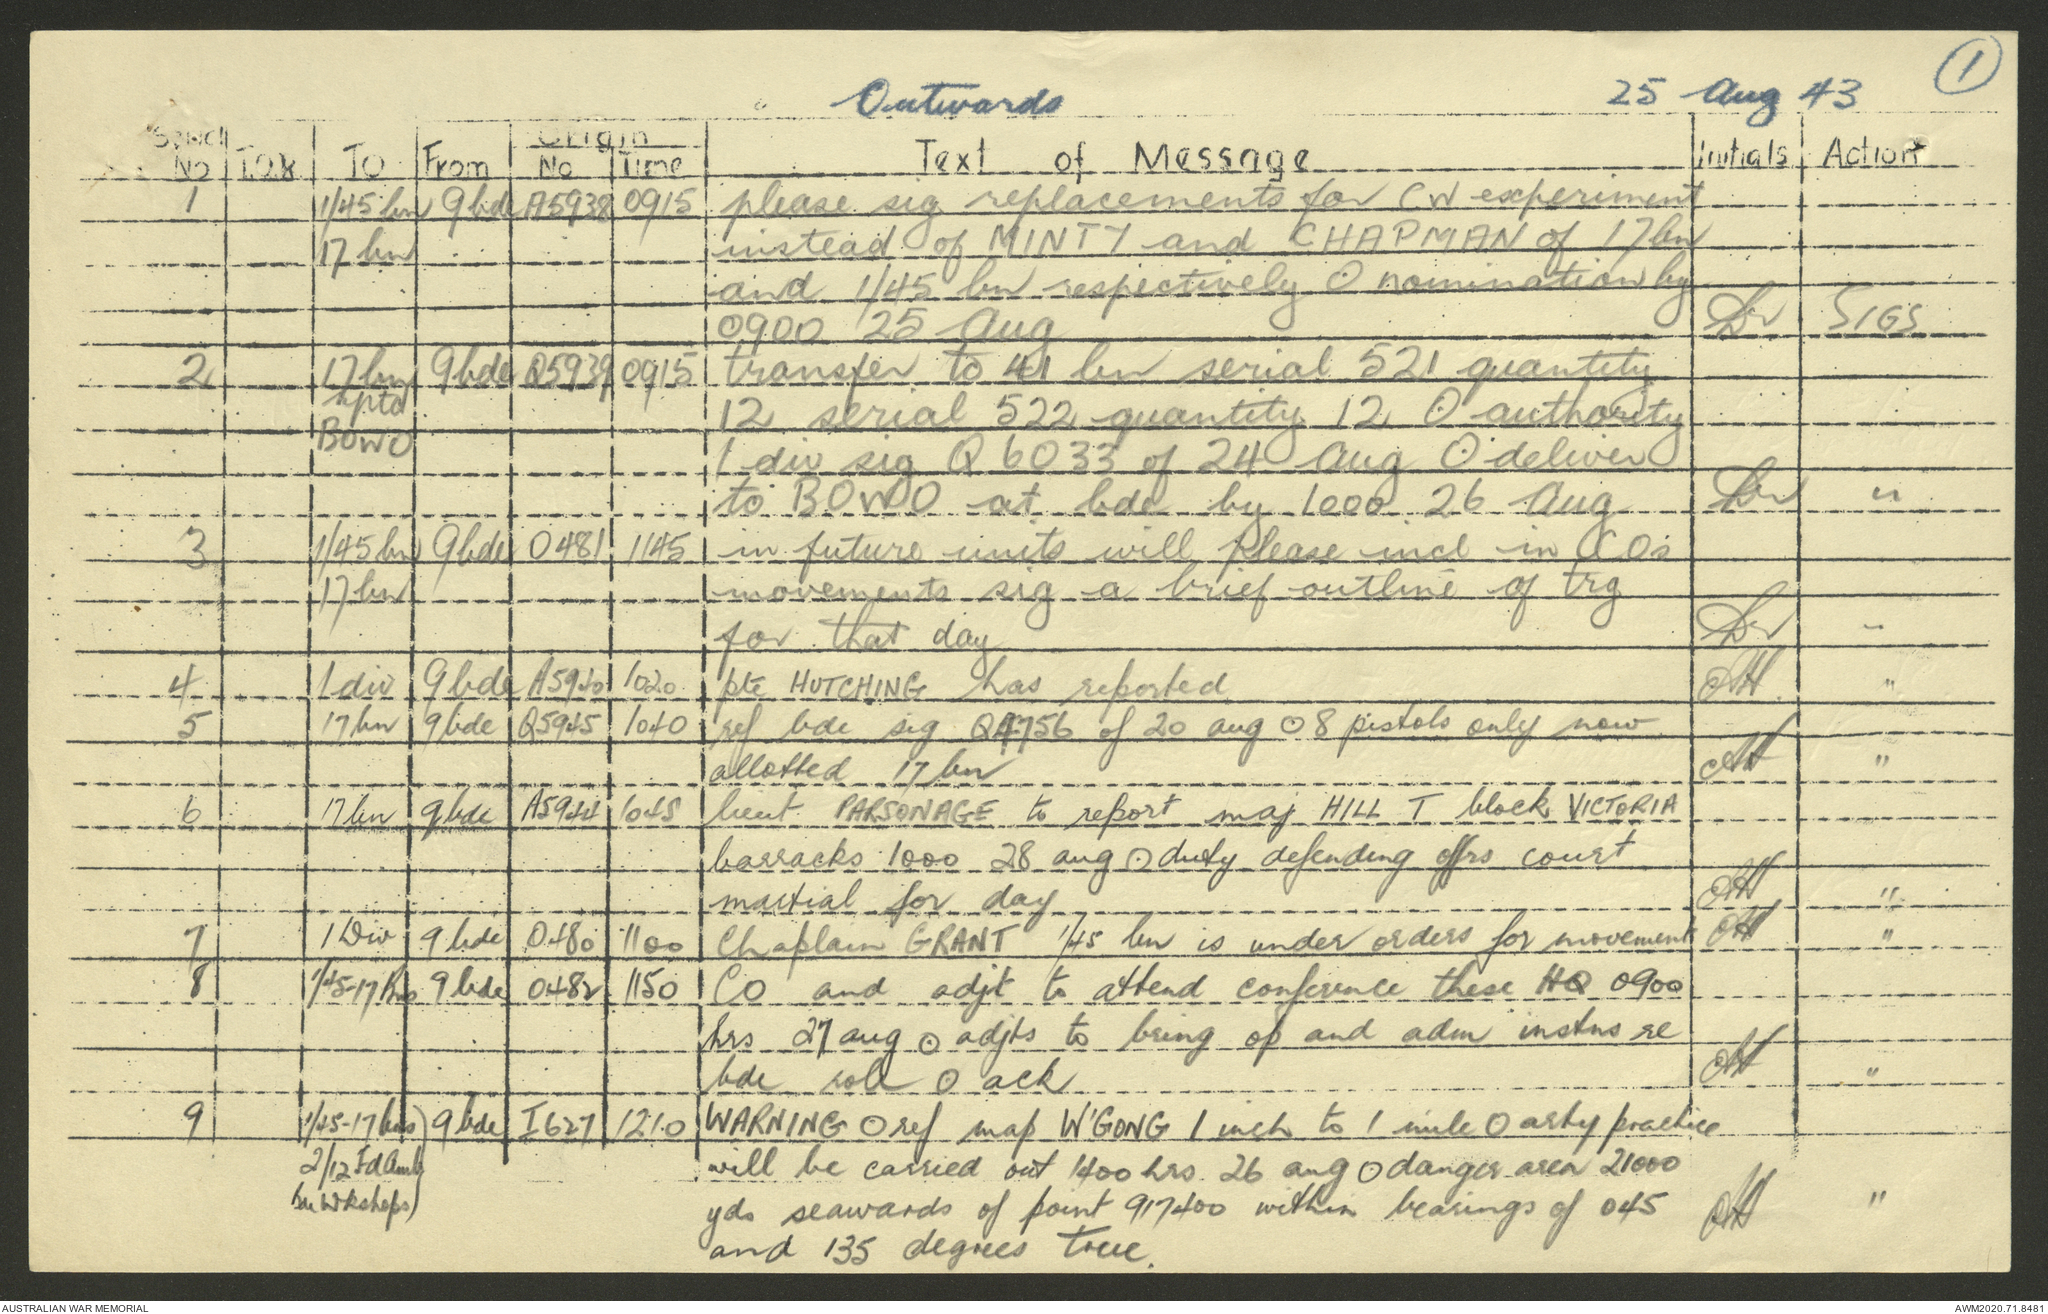 Outwards 25 Aug 43 1
Origin
No TOR TO From No Time Text of Message Initials Action
1 1/45 bn 9 bde A5938 0915 please sig replacements for CW experiment
17 bn instead of MINTY and CHAPMAN of 17 bn
and 1/45 bn respectively O nomination by
0900 25 Aug SIGS
2 17 bn 9 bde Q5939 0915 transfer to 41 bn serial 521 quantity
rptd 12 serial 522 quantity 12 O authority
BOWO 1 div sig Q 6033 of 24 Aug O deliver
to BOWO at bde by 1000 26 Aug "
3 1/45 bn 9 bde O481 1145 in future units will please incl in COs
17 bn movements sig a brief outline of trg
for that day "
4 1 div 9 bde A5940 1020 pte HUTCHING has reported "
5 17 bn 9 bde Q5945 1040 ref bde sig Q4756 of 20 aug O 8 pistols only now
allotted 17 bn "
6 17 bn 9 bde A5944 1045 lieut PARSONAGE to report maj HILL T block VICTORIA
barracks 1000 28 aug O duty defending offrs court
martial for day "
7 1 Div 9 bde O480 1100 Chaplain GRANT 1/45 bn is under orders for movement "
8 1/45-17 bns 9 bde O482 1150 CO and adjt to attend conference these HQ 0900
hrs 27 aug O adjts to bring op and adm instns re
bde role O ack "
9 1/45-17 bns) 9 bde I627 1210 WARNING O ref map W'GONG 1 inch to 1 mile O arty practice
2/12 Fd Amb will be carried out 1400 hrs 26 aug O danger area 21000
Wksheps) yds seawards of point 917400 within bearings of 045 "
and 135 degrees true.
AUSTRALIAN WAR MEMORIAL AWM2020.71.8481